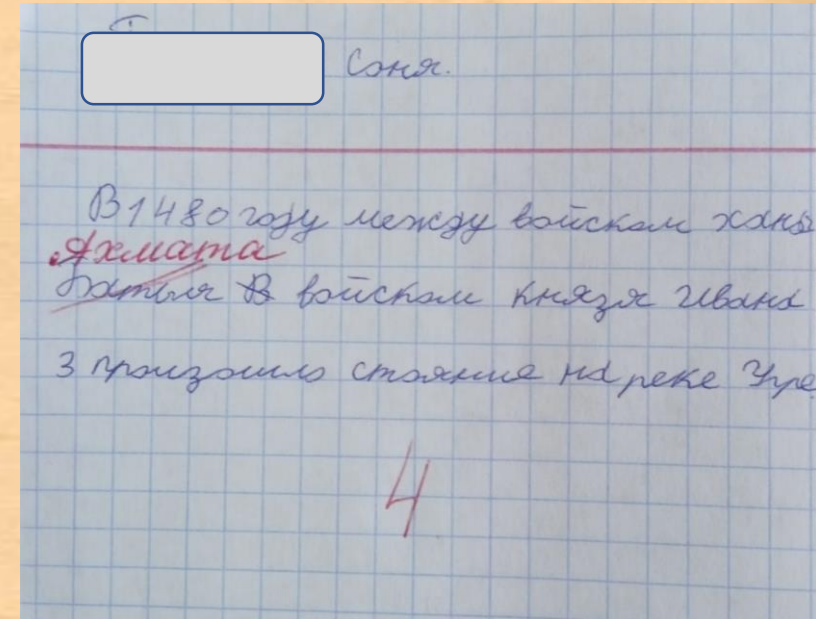 Соня.
В 1480 году между войском ханы
Ахмата
Батыя В войском князя Ивана
3 произошло стояние на реке Угре